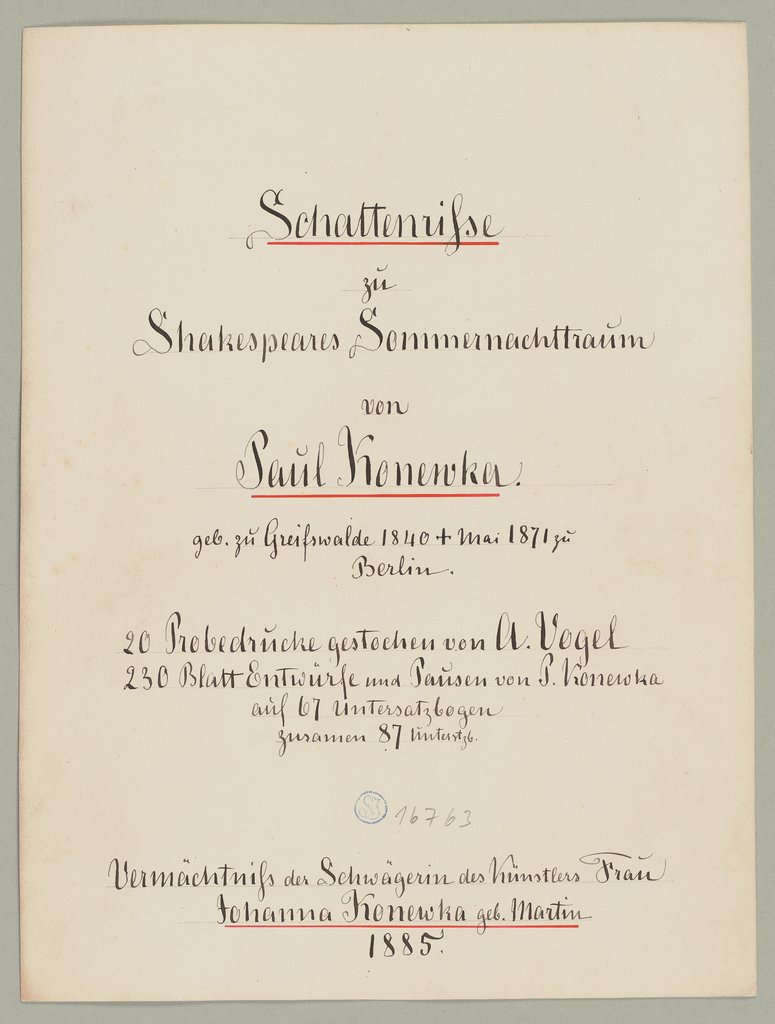 Schattenriſse
zu
Shakespeares Sommernachttraum
von
Paul Konewka.
geb. zu Greifswalde 1840 + Mai 1871 zu
Berlin.
20 Probedrucke gestochen von A. Vogel
230 Blatt Entwürfe und Pausen von P. Konewka
auf 67 Untersatzbogen
zusamen 87 Unterstzb.
16763
Vermächtniſs der Schwägerin des Künstlers Frau
Johanna Konewka geb. Martin
1885.